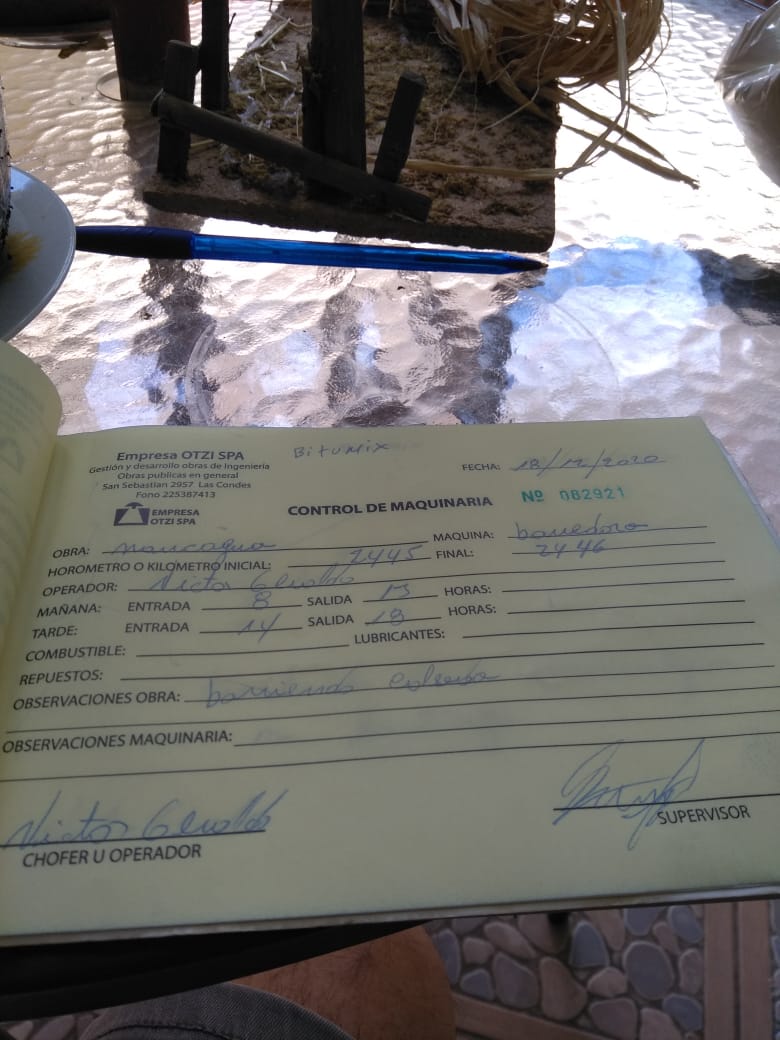 Empresa OTZI SPA
Gestión y desarrollo obras de Ingenieria
Obras publicas en general
San Sebastian 2957 Las Condes
Fono 225387413
EMPRESA
OTZI SPA
Bitumix
FECHA: 18/12/2020
CONTROL DE MAQUINARIA Nº 082921
OBRA: MAQUINA: barredora
HOROMETRO O KILOMETRO INICIAL: 2445 FINAL: 2446
OPERADOR: Victor Geraldo
MAÑANA: ENTRADA 8 SALIDA 13 HORAS:
TARDE: ENTRADA 14 SALIDA 18 HORAS:
COMBUSTIBLE: LUBRICANTES:
REPUESTOS:
OBSERVACIONES OBRA: barriendo calzada
OBSERVACIONES MAQUINARIA:
Victor Geraldo
CHOFER U OPERADOR
SUPERVISOR